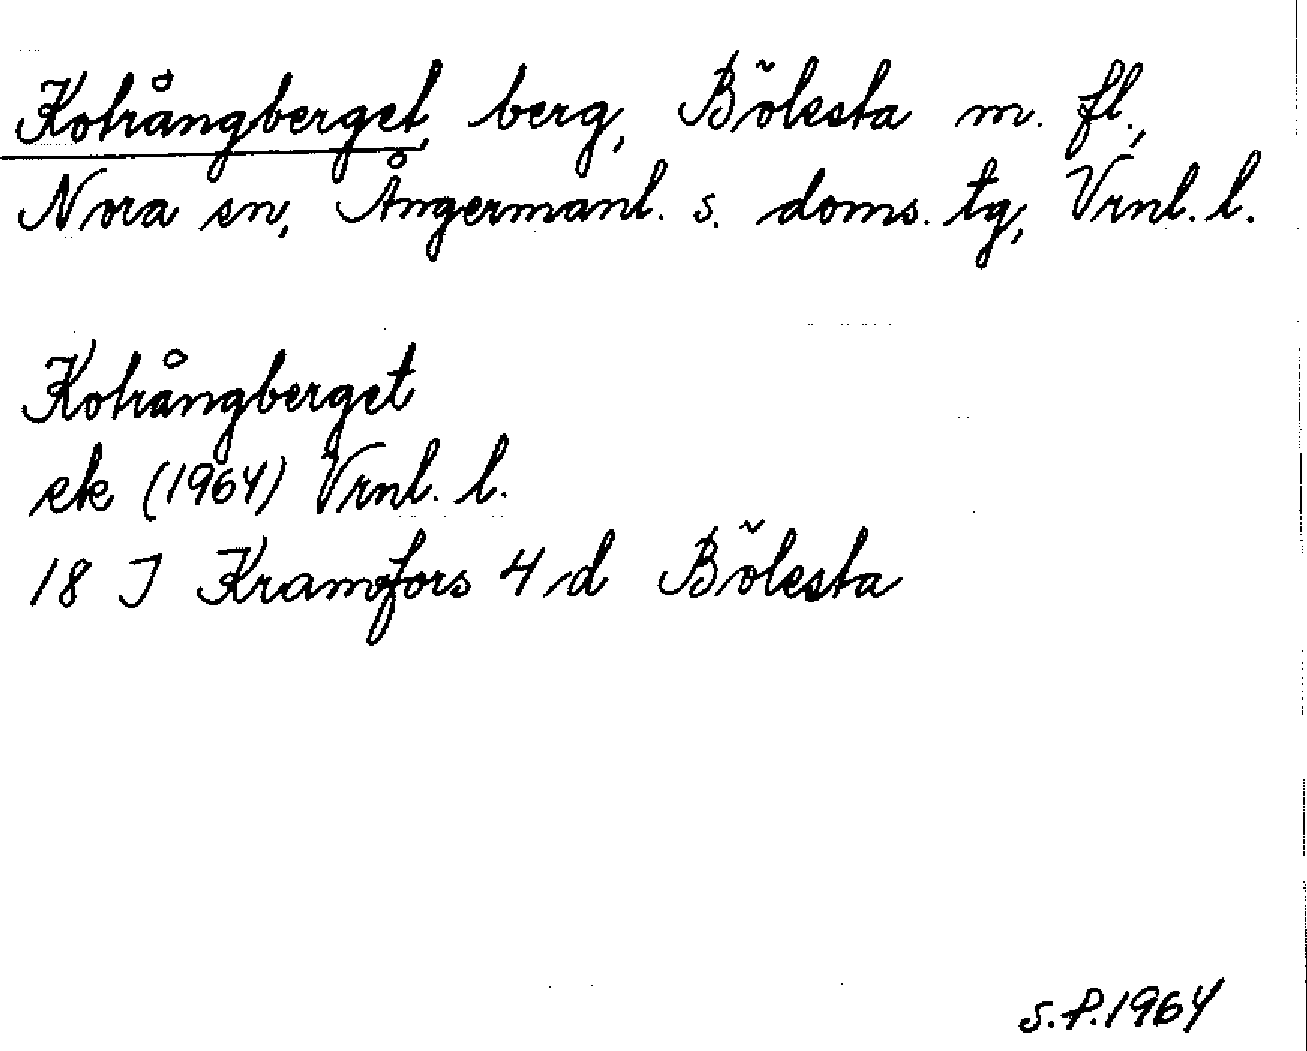 Kotrångberget, berg, Bölesta m. fl.,
Nora sn, Ångermanl. s. doms. tg, Vrnl. l.
Kotrångberget
ek (1964) Vrnl. l.
18 J Kramfors 4 d Bölesta
S.P. 1964